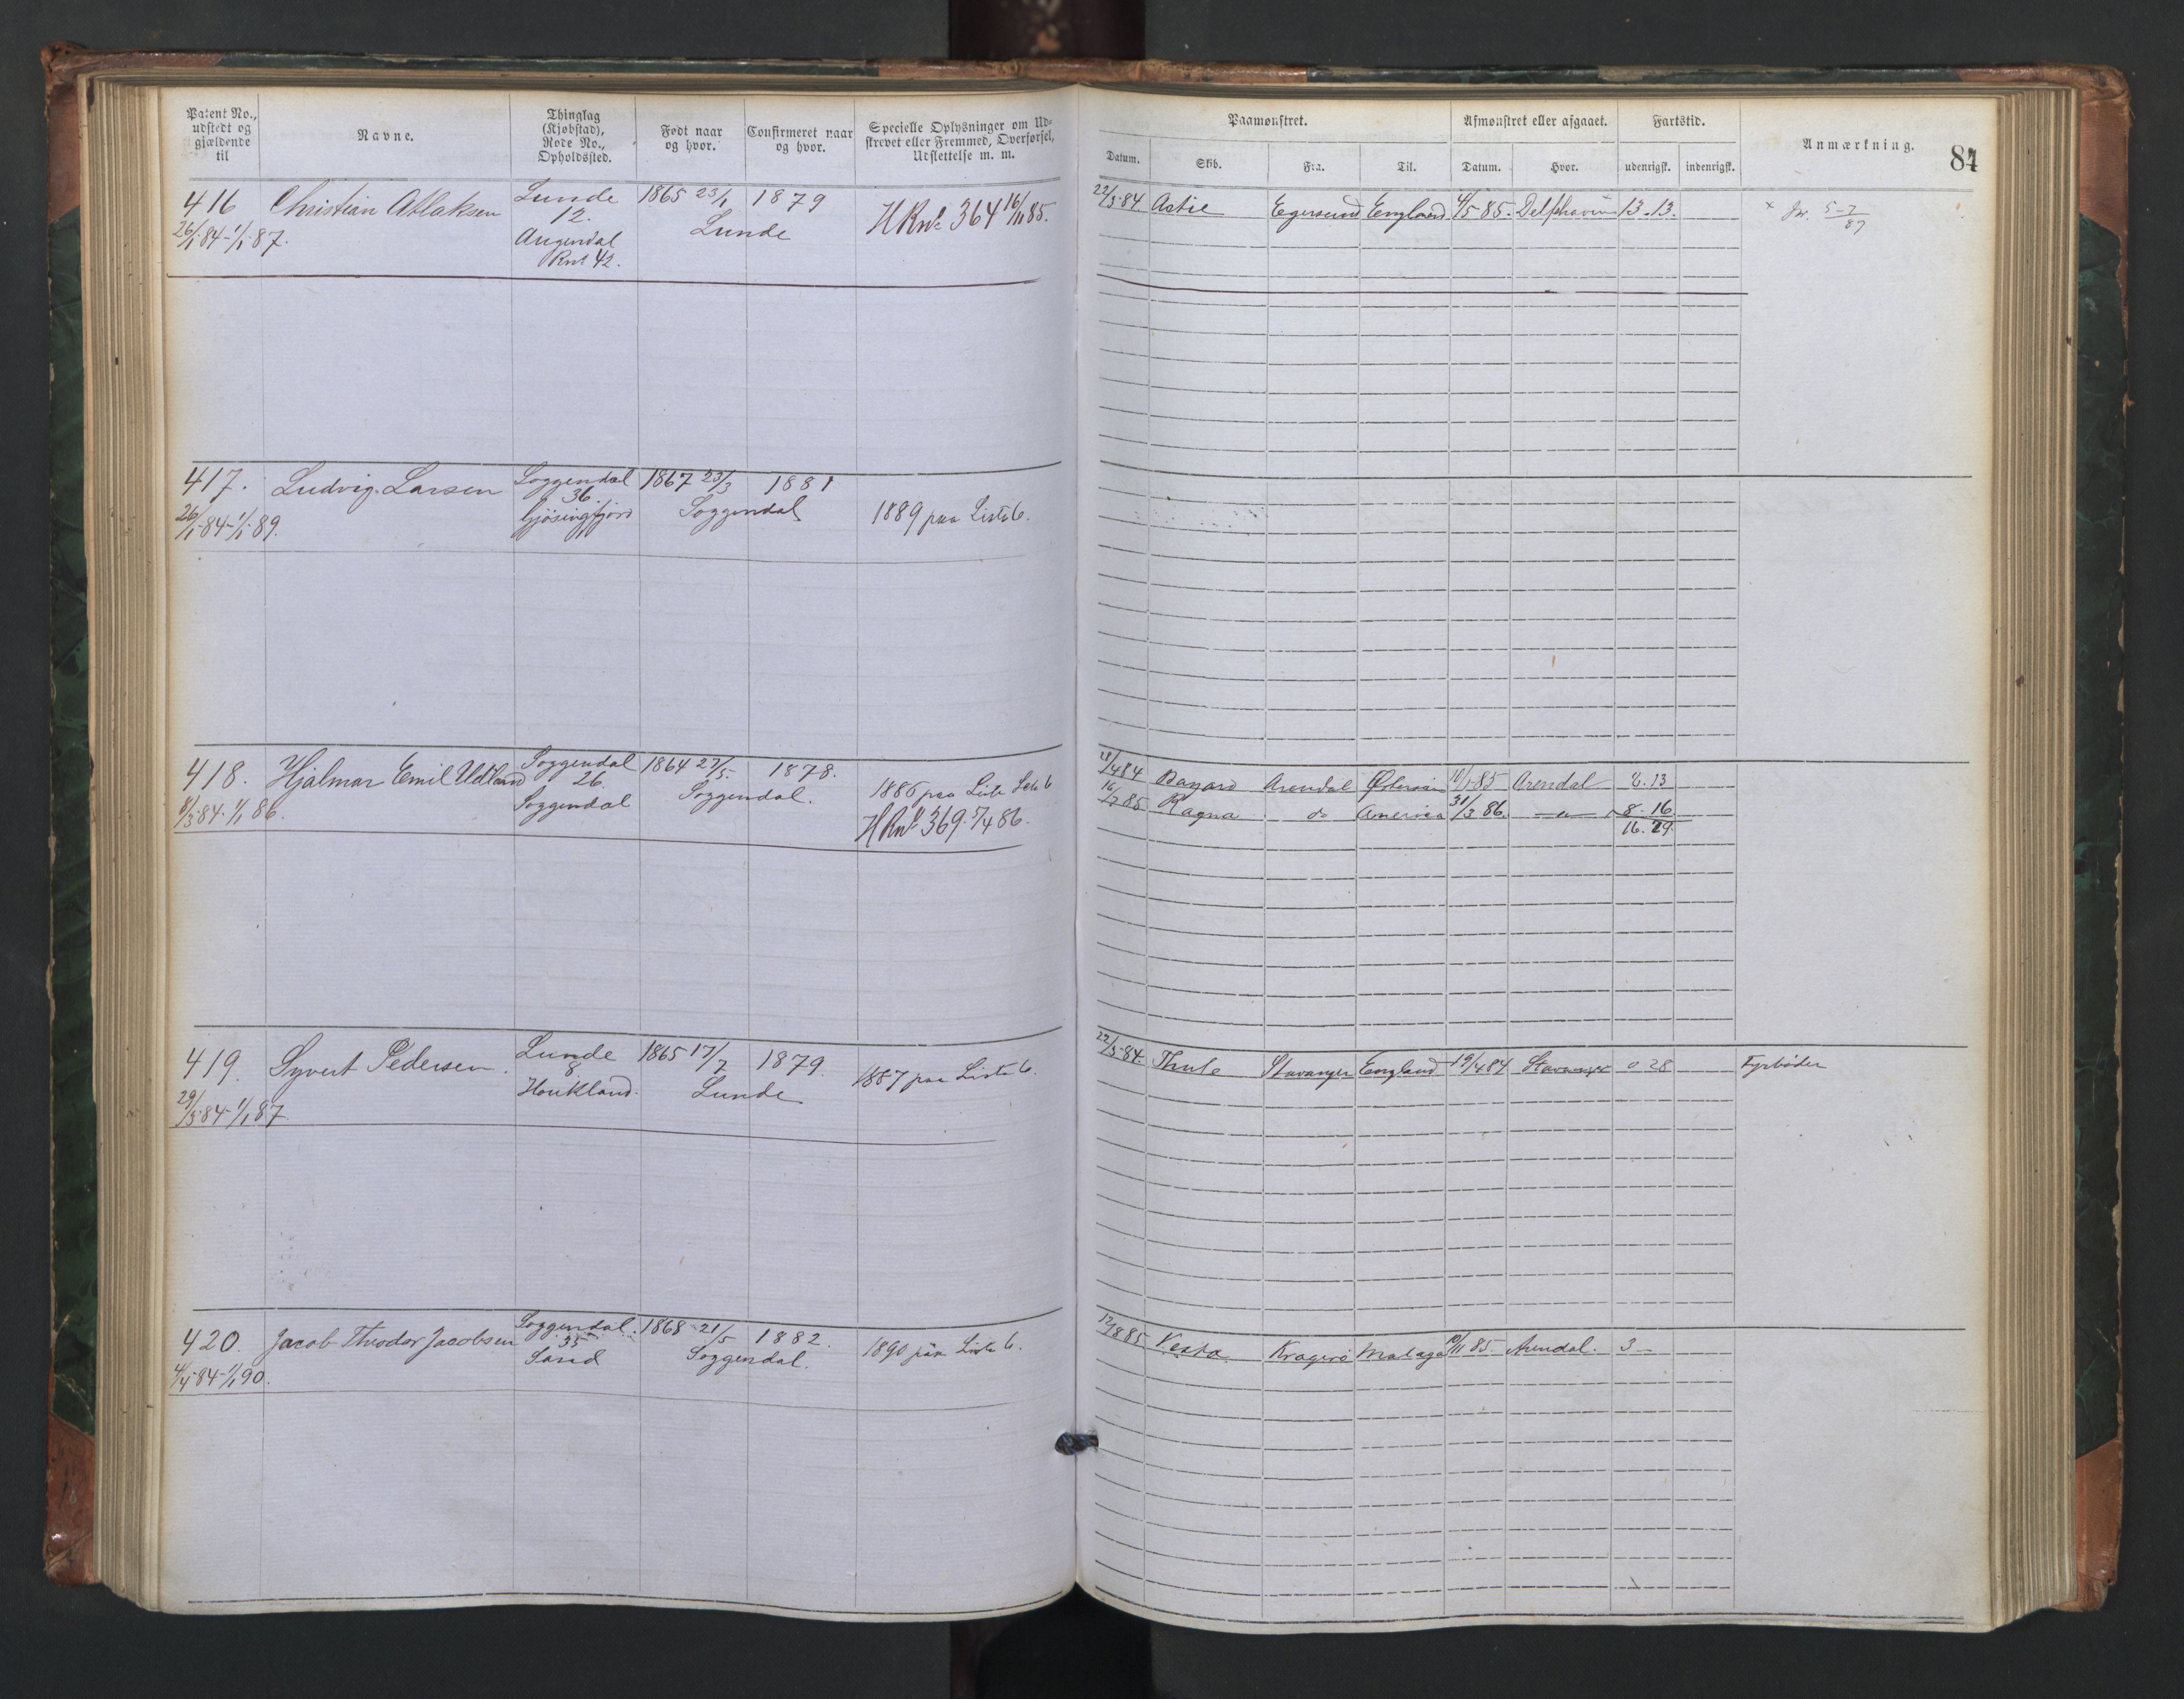 Patent No., udstedt og gjældende til
Navne.
Thinglag (Kjøbstad), Rode No., Opholdssted.
Født naar og hvor.
Confirmeret naar og hvor.
Specielle Oplysninger om Udskrevet eller Fremmed, Overførsel, Udslettelse m. m.
Paamønstret.
Datum.
Skib.
Fra.
Til.
Afmønstret eller afgaaet.
Datum.
Hvor.
Fartstid.
udenrigsk.
indenrigsk.
Anmærkning.
84
416 Christian Atlaksen Lunde 1865 23/1 1879
26/1-84-1/1-87. 12. Lunde H Rn: 364 16/11 85.
Augendal
Rn: 42.
22/3-84 Astie Egersund England 4/5 85. Delfshaven 13.13. 5-7/87
417. Ludvig Larsen Soggendal 1867 23/3 1881
26/1-84-1/1-89. 36. Soggendal 1889 paa Liste 6.
Gjösingfjord
418. Hjalmar Emil Udtland Soggendal 1864 27/5- 1878.
8/3-84-1/1 86. 26. Soggendal. 1886 paa Liste 6
Soggendal H Rn: 369 5/4 86.
18/4 84 Arendal 10/1-85 Arendal 8.13
16/2 85 Ragna do America 31/3 86. — " — 8.16
16.29
419. Syvert Pedersen. Lunde 1865 17/7 1879.
29/3-84-1/1 87 8. Lunde 1887 paa Liste 6.
Houkland.
22/3-84. Thule Stavanger England 19/4 84 Stavanger 0 28 Fyrböder
420. Jacob Theodor Jacobsen Soggendal. 1868 21/5 1882.
4/4-84-1/1 90. 35 Soggendal. 1890 paa Liste 6.
Sand
12/8 85 Vesta Kragerö Malaga 10/11 85 Arendal. 3 —